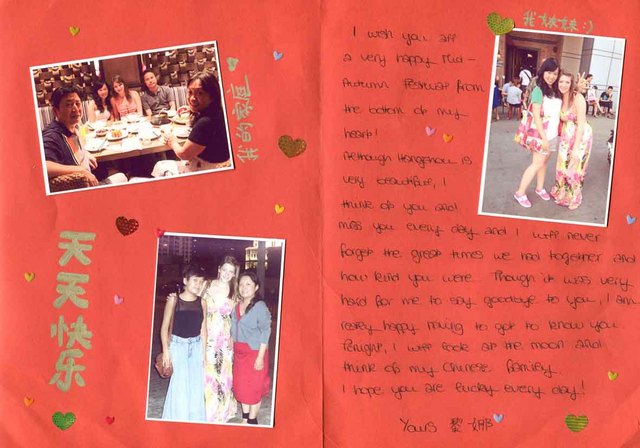 我的家庭
天天快乐
我妹妹:)
I wish you all
a very happy Mid-
Autumn Festival from
the bottom of my
heart!
Although Hangzhou is
very beautiful, I
think of you and
miss you every day and I will never
forget the great times we had together and
how kind you were. Though it was very
hard for me to say goodbye to you, I am
really happy having to got to know you.
Tonight, I will look at the moon and
think of my Chinese family.
I hope you are lucky every day!
Yours 黎娜